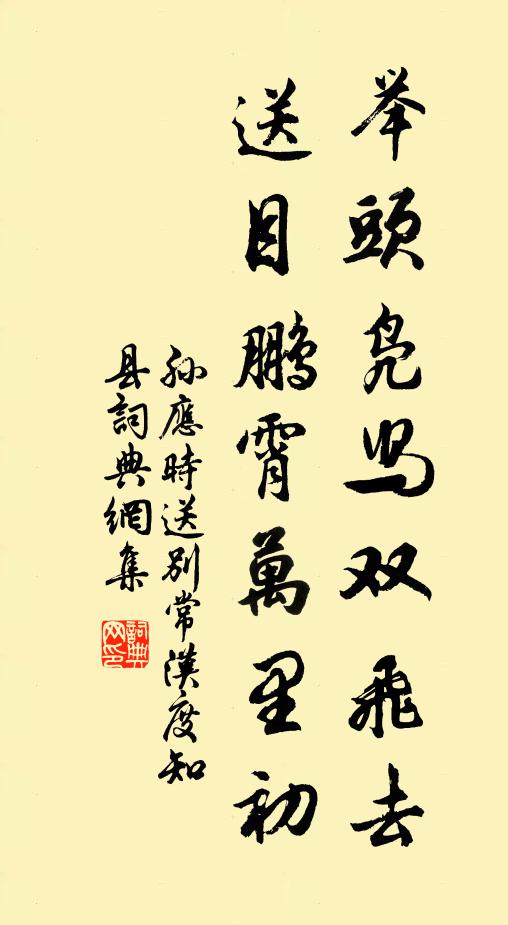 举頭凫舄双飛去
送目鵬霄萬里初
孙應時送别常漢度知
县詞典網集
詞典
网印